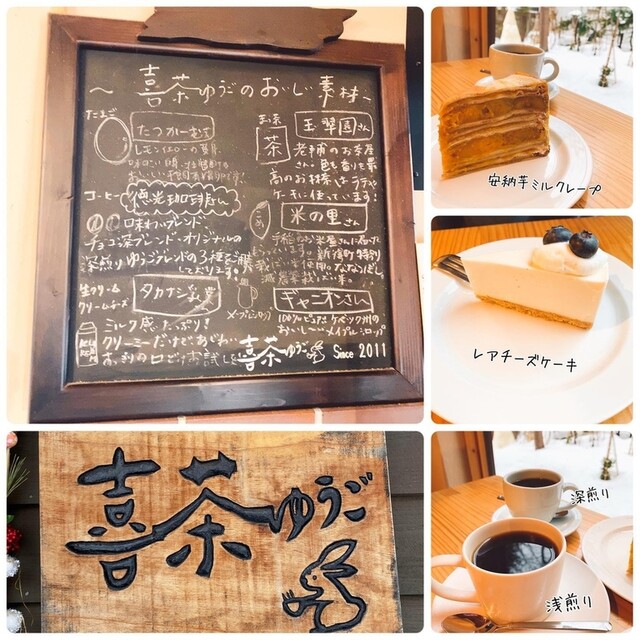 ～喜茶ゆうごのおいしい素材～
たまご
たつかーむさん
レモンイエローの黄身
コーヒー
徳光珈琲さん
口味わいブレンド
チョコ深ブレンド・オリジナルの
深煎りゆうごブレンドの3種をご用意
しております!
生クリーム
クリームチーズ
タカナシ乳業
ミルク感たっぷり!
クリーミーだけど、あじわい
すっきりの口どけお試しを
お茶
茶
玉翠園さん
老舗のお茶屋
さん。色も香りも最
高のお抹茶はラテや
ケーキに使っています!
おこめ
米の里さん
新篠津村特別
栽培ななつぼし。
減農薬栽培米。
メープルシロップ
ギャニオンさん
100%ピュアなケベック州の
おいし〜いメイプルシロップ
喜茶ゆうご Since 2011
安納芋ミルクレープ
レアチーズケーキ
喜茶ゆうご
深煎り
浅煎り